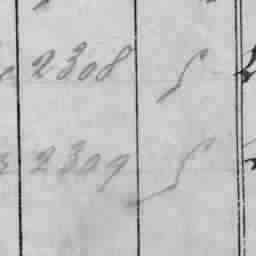 2308 S
2309 S